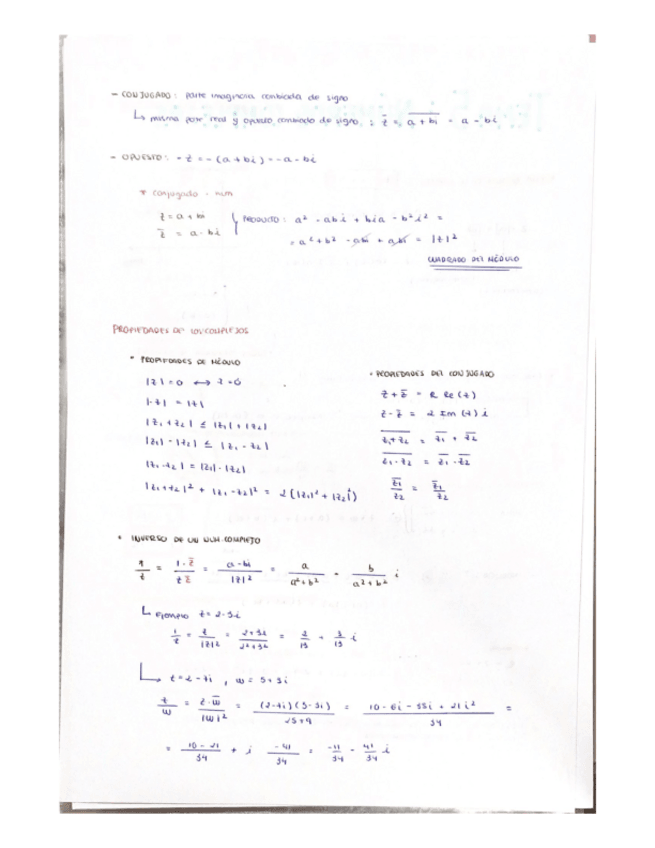 - CONJUGADO: parte imaginaria cambiada de signo
↳ misma parte real y opuesto cambiado de signo : z̅ = \overline{a + bi} = a - bi
- OPUESTO: - z = - (a + bi) = -a - bi
* conjugado · num
z = a + bi
z̅ = a - bi
PRODUCTO: a² - abi + bia - b²i² =
= a² + b² - abi + abi = |z|²
CUADRADO DEL MÓDULO
PROPIEDADES DE LOS COMPLEJOS
• PROPIEDADES DE MÓDULO
|z| = 0 ↔ z = 0
|-z| = |z|
|z₁ + z₂| ≤ |z₁| + |z₂|
|z₁| - |z₂| ≤ |z₁ - z₂|
|z₁ · z₂| = |z₁| · |z₂|
|z₁ + z₂|² + |z₁ - z₂|² = 2 (|z₁|² + |z₂|²)
• PROPIEDADES DEL CONJUGADO
z + z̅ = 2 Re (z)
z - z̅ = 2 Im (z) i
\overline{z₁ + z₂} = \overline{z₁} + \overline{z₂}
\overline{z₁ · z₂} = \overline{z₁} · \overline{z₂}
\overline{z₁}/z₂ = \overline{z₁}/\overline{z₂}
• INVERSO DE UN NUM. COMPLEJO
1/z = 1 · z̅ / z z̅ = a - bi / |z|² = a / a² + b² - b / a² + b² i
↳ ejemplo z = 2 - 3i
1/z = z̅ / |z|² = 2 + 3i / 2² + 3² = 2/13 + 3/13 i
↳ z = 2 - 7i , w = 5 + 3i
z/w = z · w̅ / |w|² = (2 - 7i)(5 - 3i) / 25 + 9 = 10 - 6i - 35i + 21i² / 34 =
= 10 - 21 / 34 + i -41 / 34 = -11/34 - 41/34 i